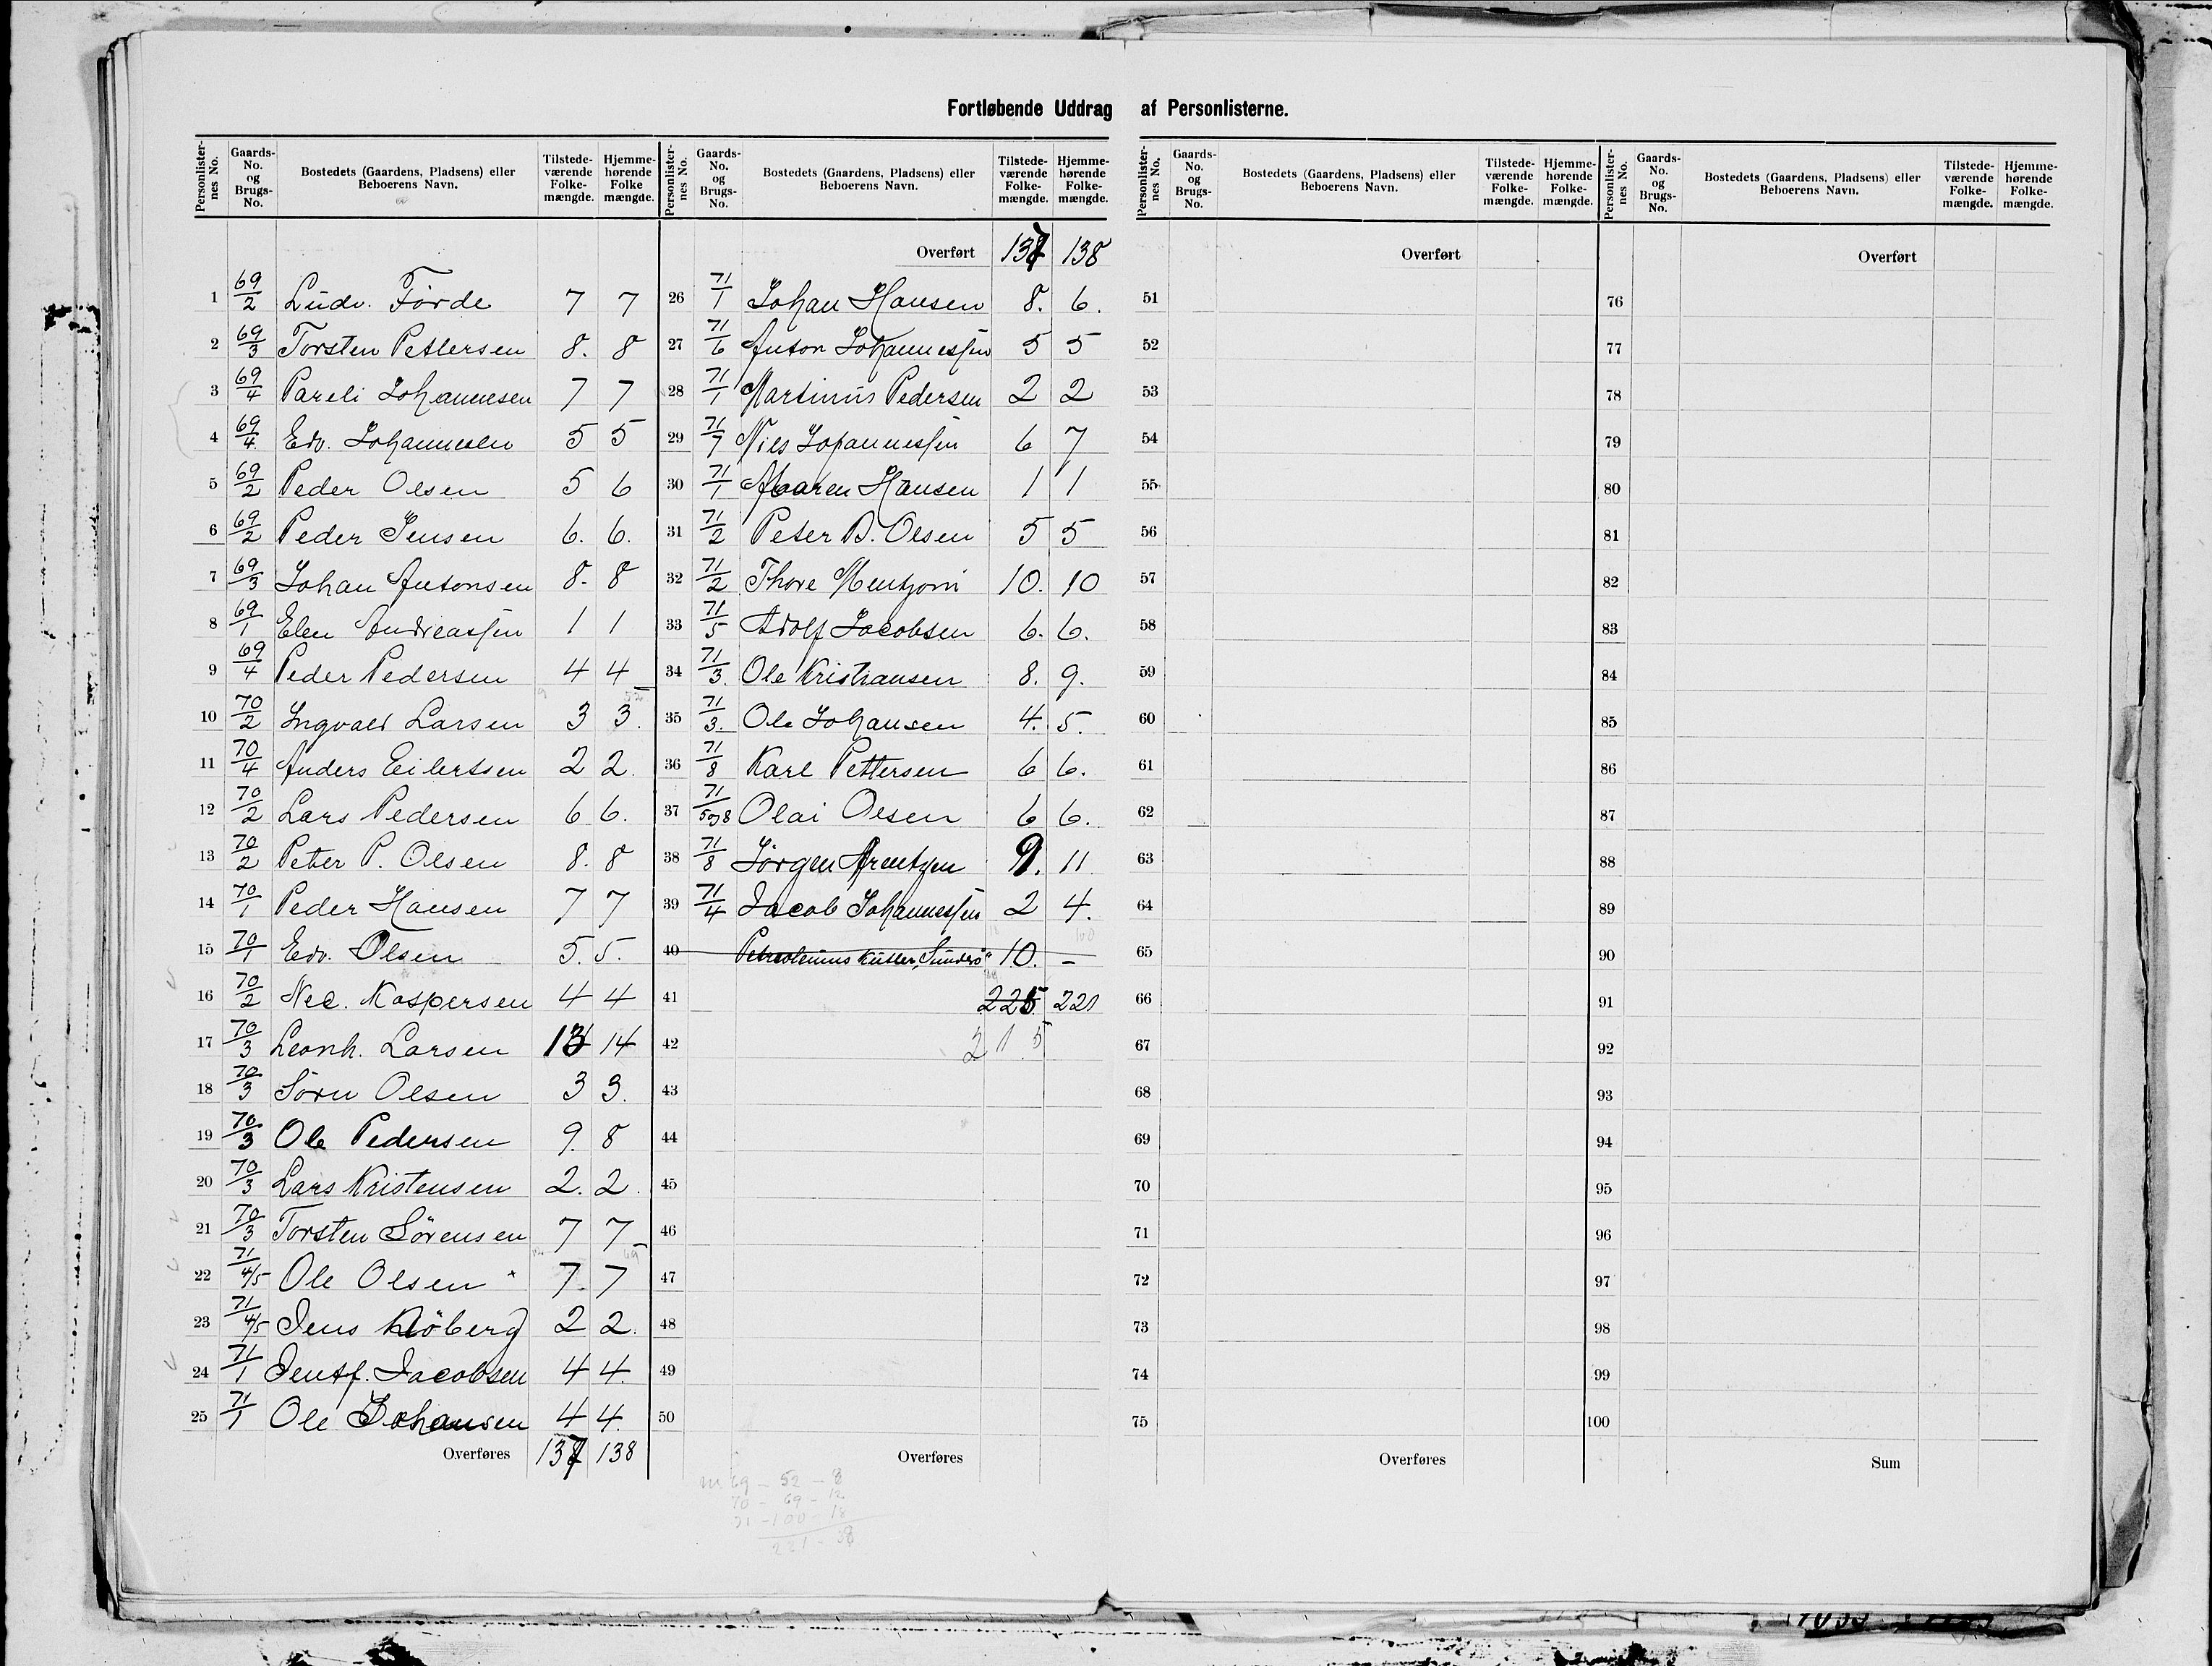 Fortløbende Uddrag af Personlisterne.
Personlister-nes No. Gaards-No. og Brugs-No. Bostedets (Gaardens, Pladsens) eller Beboerens Navn. Tilstede-værende Folke-mængde. Hjemme-hørende Folke mængde.
1 69/2 Ludv. Förde 7 7
2 69/3 Torsten Pettersen 8. 8
3 69/4 Pareli Johannesen 7 7
4 69/4 Edv. Johannesen 5 5
5 69/2 Peder Olsen 5 6
6 69/2 Peder Jensen 6. 6.
7 69/3 Johan Antonsen 8. 8
8 69/1 Elen Andreassen 1 1
9 69/4 Peder Pedersen 4 4
10 70/2 Ingvald Larsen 3 3.
11 70/4 Anders Eilertsen 2 2.
12 70/2 Lars Pedersen 6 6.
13 70/2 Peter P. Olsen 8. 8
14 70/1 Peder Hansen 7 7
15 70/1 Edv. Olsen 5. 5.
16 70/2 Nec. Kaspersen 4 4
17 70/3 Leonh. Larsen 13 14
18 70/3 Sörn Olsen 3 3.
19 70/3 Ole Pedersen 9. 8
20 70/3 Lars Kristensen 2. 2.
21 70/3 Torsten Sörensen 7 7
22 71/4/5 Ole Olsen 7. 7
23 71/4/5 Jens Klöberg 2 2.
24 71/1 Jentf. Jacobsen 4 4.
25 71/1 Ole Johansen 4 4.
Overføres 137 138
Personlister-nes No. Gaards-No. og Brugs-No. Bostedets (Gaardens, Pladsens) eller Beboerens Navn. Tilstede-værende Folke-mængde. Hjemme-hørende Folke-mængde.
Overført 137 138
26 71/1 Johan Hansen 8. 6.
27 71/6 Anton Johannessen 5 5
28 71/1 Martinus Pedersen 2 2
29 71/7 Nils Johannessen 6 7
30 71/1 Maren Hansen 1 1
31 71/2 Peter B. Olsen 5 5
32 71/2 Thore Mentzoni 10. 10
33 71/5 Adolf Jacobsen 6. 6.
34 71/3. Ole Kristiansen 8. 9.
35 71/3. Ole Johansen 4. 5.
36 71/8 Karl Pettersen 6 6.
37 71/5og8 Olai Olsen 6 6.
38 71/8 Jörgen Arentzen 9. 11
39 71/4 Jacob Johannessen 2 4.
40 Petroleums Kutter "Sunderö" 10. –
41 225 221
42 215
43
44
45
46
47
48
49
50
Overføres
m 69 – 52 – 8
70 – 69 – 12
71 – 100 – 18
221 – 38
Personlister-nes No. Gaards-No. og Brugs-No. Bostedets (Gaardens, Pladsens) eller Beboerens Navn. Tilstede-værende Folke-mængde. Hjemme-hørende Folke-mængde.
Overført
51
52
53
54
55
56
57
58
59
60
61
62
63
64
65
66
67
68
69
70
71
72
73
74
75
Overføres
Personlister-nes No. Gaards-No. og Brugs-No. Bostedets (Gaardens, Pladsens) eller Beboerens Navn. Tilstede-værende Folke-mængde. Hjemme-hørende Folke-mængde.
Overført
76
77
78
79
80
81
82
83
84
85
86
87
88
89
90
91
92
93
94
95
96
97
98
99
100
Sum